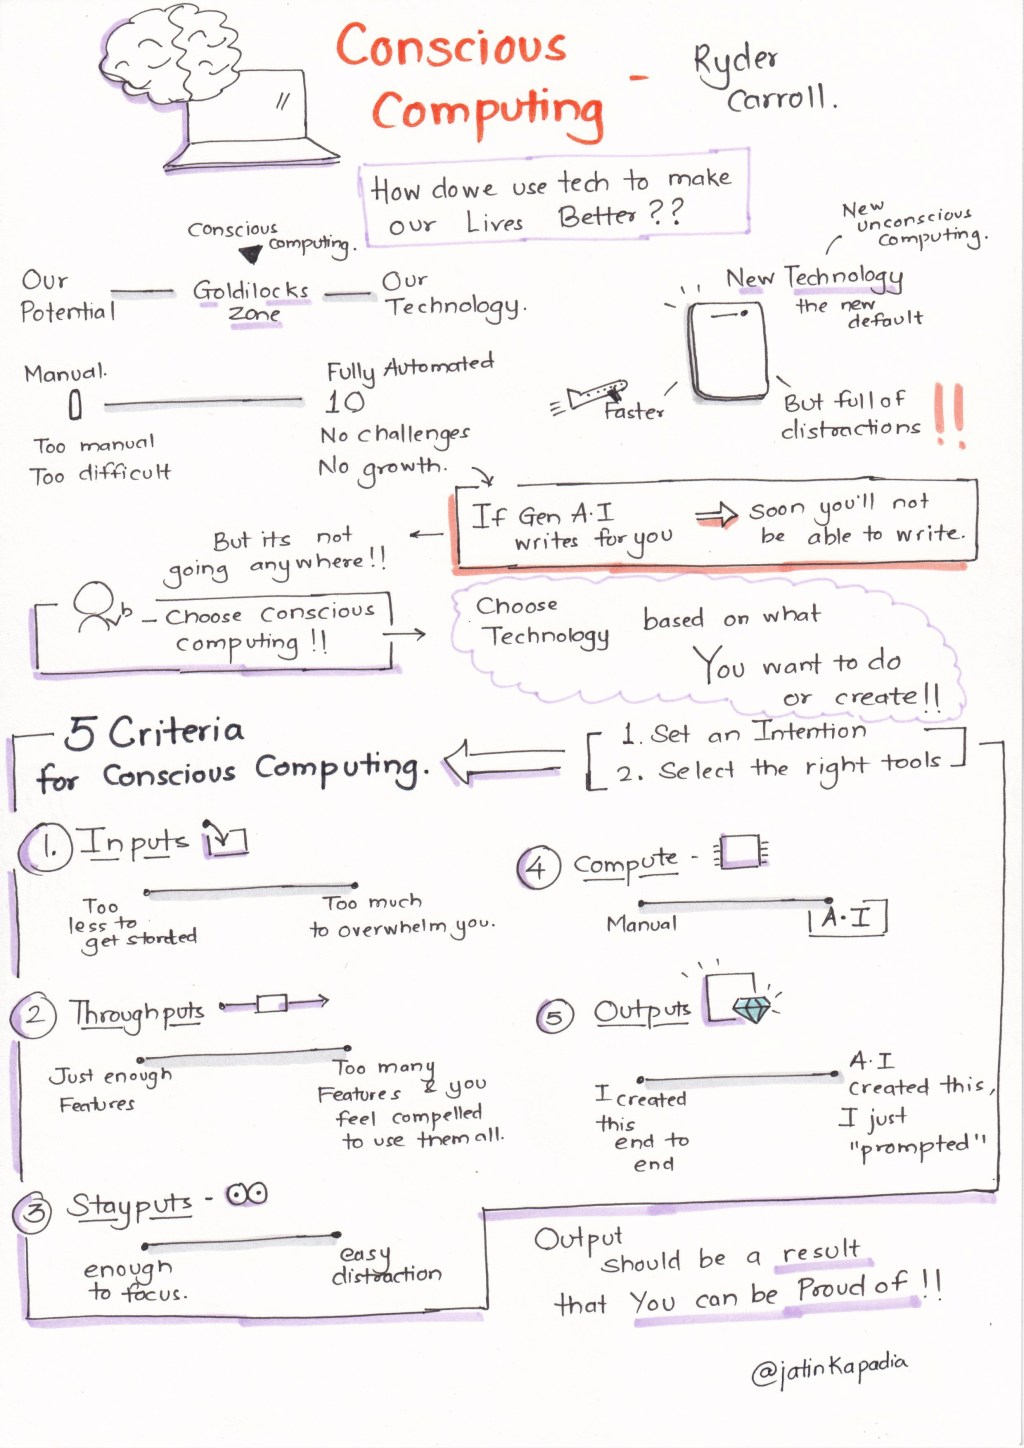 Conscious
Computing -
Ryder
Carroll.
How do we use tech to make
our Lives Better??
Conscious
computing.
Our
Potential
Goldilocks
zone
Our
Technology.
New
unconscious
computing.
New Technology
the new
default
Faster
But full of
distractions !!
Manual.
0
Too manual
Too difficult
Fully Automated
10
No challenges
No growth.
If Gen A.I
writes for you
Soon you'll not
be able to write.
But its not
going anywhere!!
- Choose conscious
computing !!
Choose
Technology
based on what
You want to do
or create!!
1. Set an Intention
2. Select the right tools
5 Criteria
for Conscious Computing.
1. Inputs
Too
less to
get started
Too much
to overwhelm you.
2 Throughputs
Just enough
Features
Too many
Features & you
feel compelled
to use them all.
3 Stayputs -
enough
to focus.
easy
distraction
4 Compute -
Manual
A.I
5 Outputs
I created
this
end to
end
A.I
created this,
I just
"prompted"
Output
should be a result
that You can be Proud of !!
@jatinkapadia